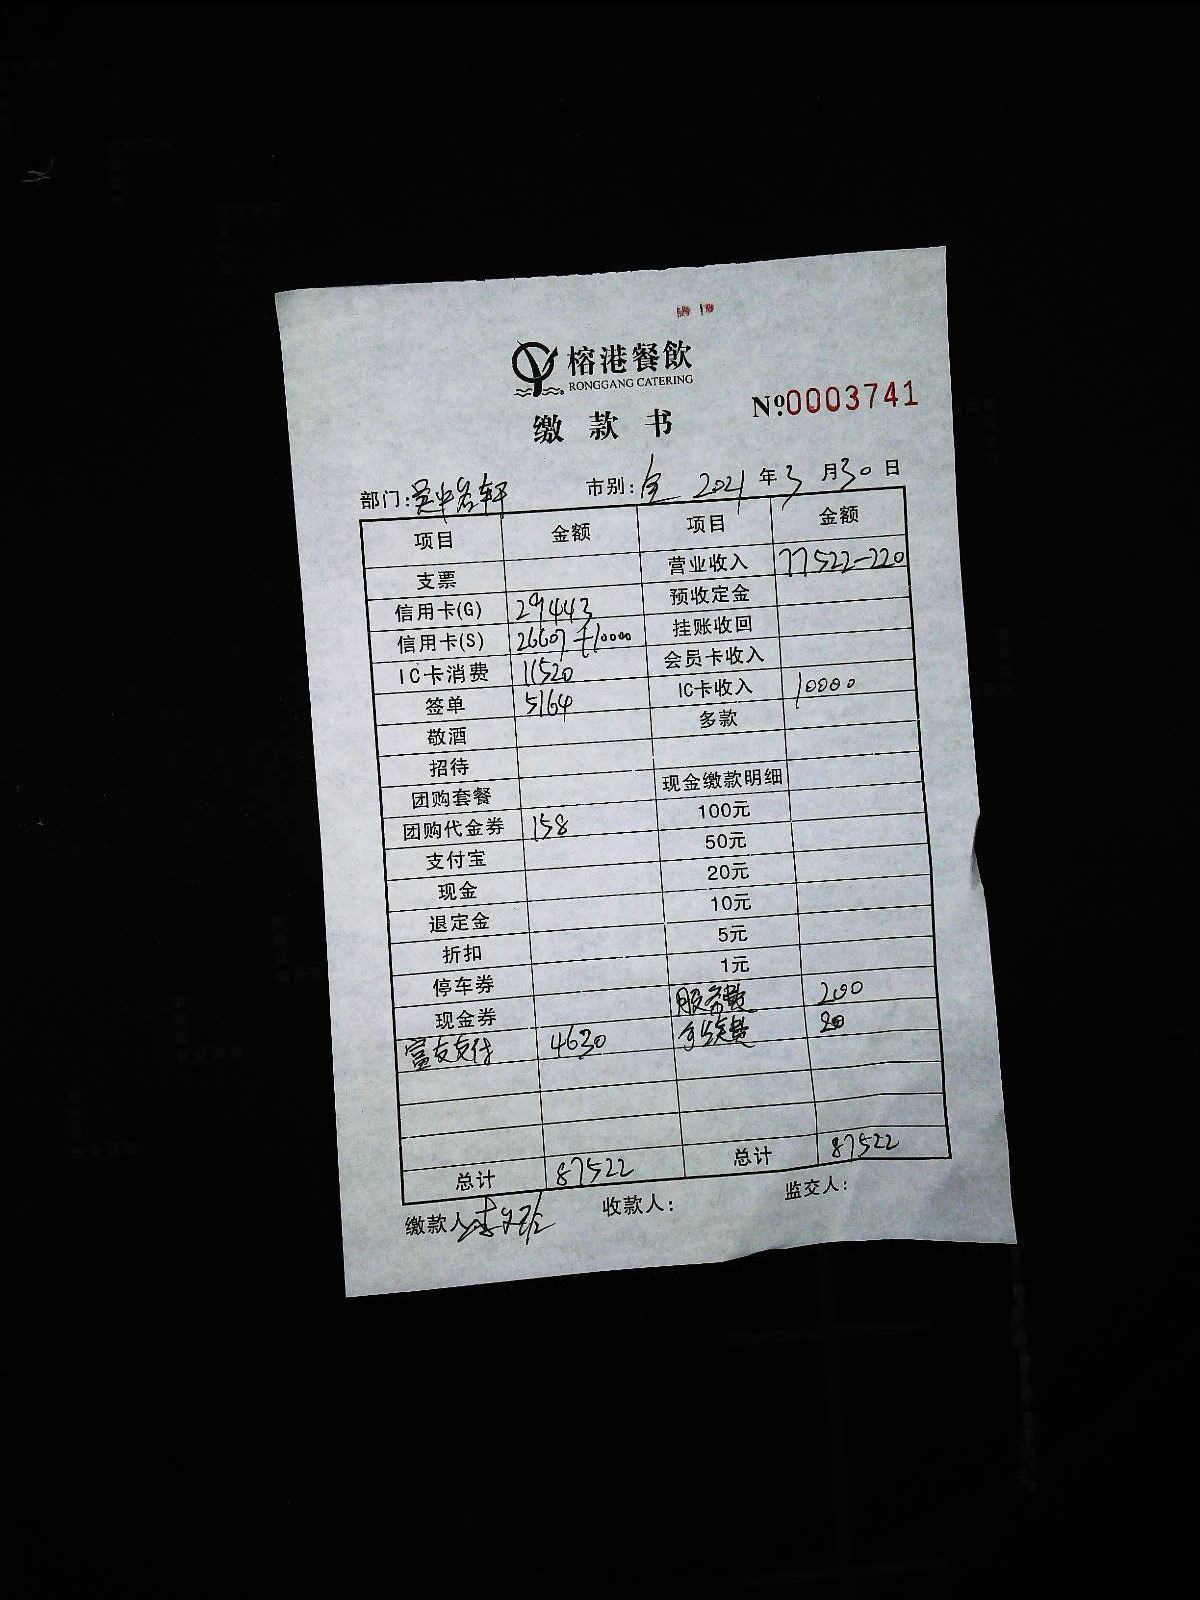 榕港餐飲
RONGGANG CATERING
缴款书
Nº:0003741
部门: 市别:全 2021年3月30日
项目 金额 项目 金额
支票 营业收入 77522-220
信用卡(G) 29443 预收定金
信用卡(S) 26607+10000 挂账收回
IC卡消费 11520 会员卡收入
签单 5164 IC卡收入 10000
敬酒 多款
招待
团购套餐 现金缴款明细
团购代金券 158 100元
支付宝 50元
现金 20元
退定金 10元
折扣 5元
停车券 1元
现金券 服务费 200
富友支付 4630 手续费 20
总计 87522 总计 87522
缴款人 收款人: 监交人: